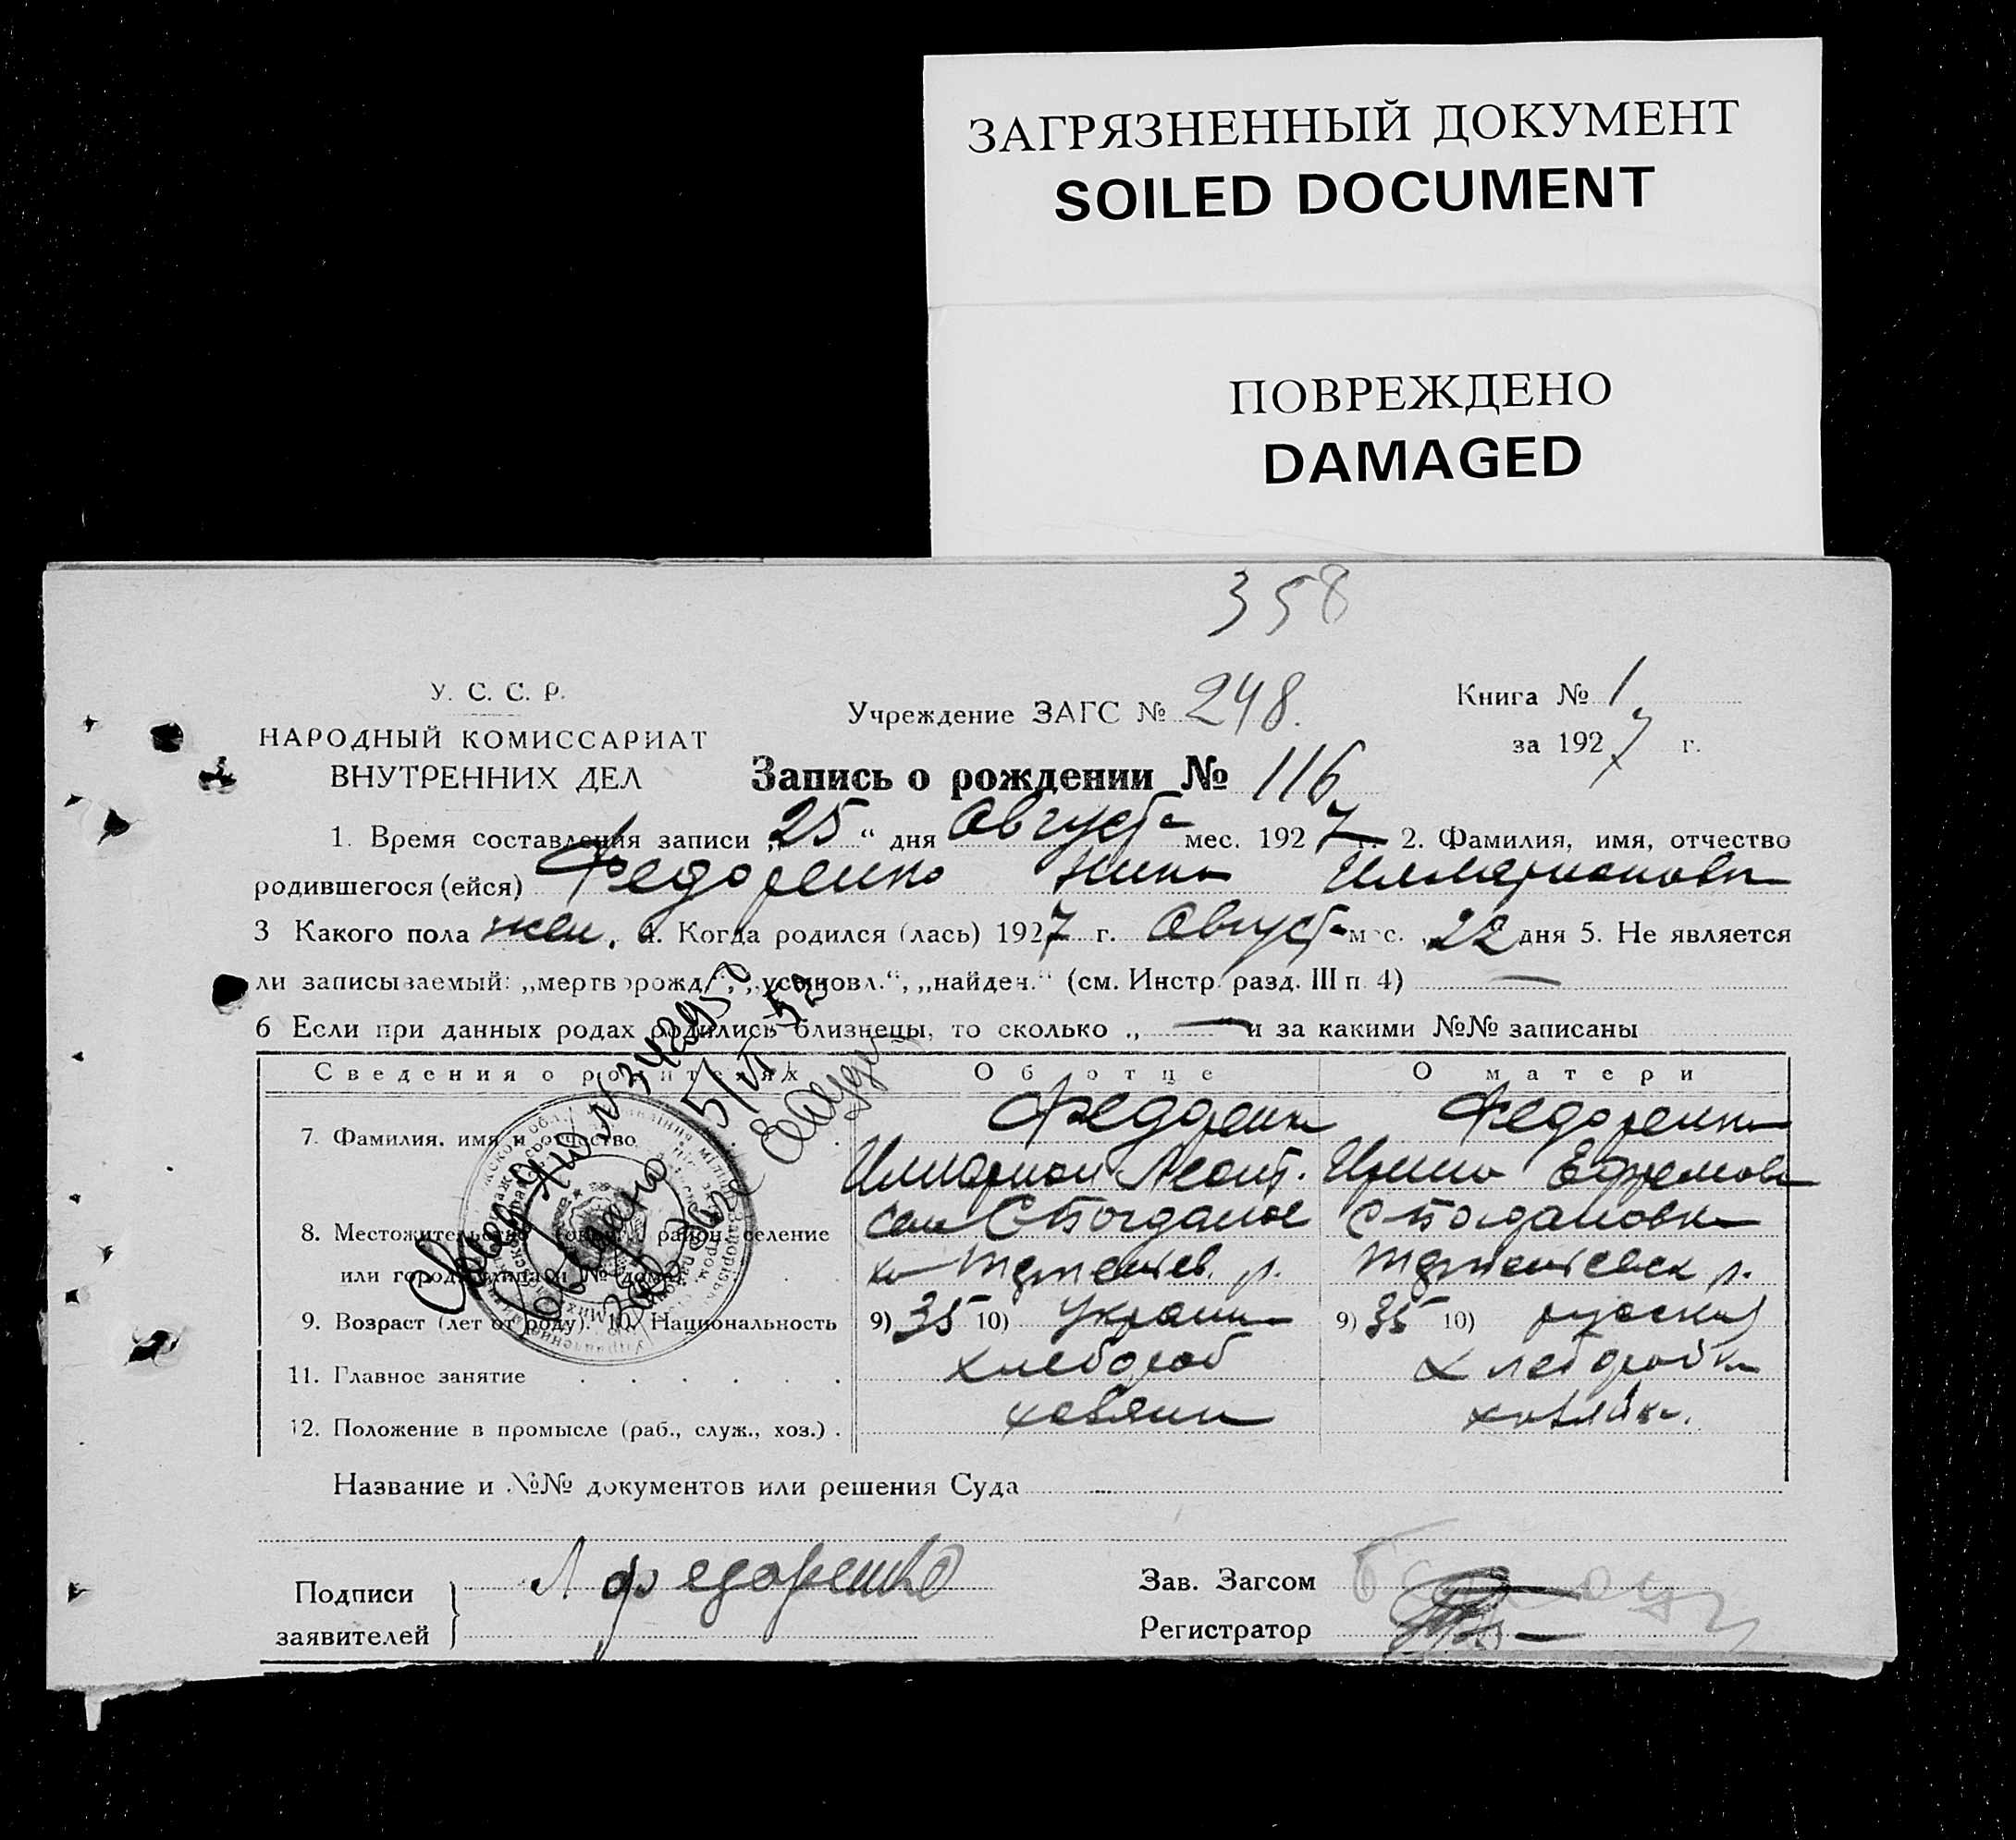 ЗАГРЯЗНЕННЫЙ ДОКУМЕНТ
SOILED DOCUMENT
ПОВРЕЖДЕНО
DAMAGED
358
У. С. С. Р.
НАРОДНЫЙ КОМИССАРИАТ
ВНУТРЕННИХ ДЕЛ
Учреждение ЗАГС № 248.
Книга № 1
за 1927 г.
Запись о рождении № 116
1. Время составления записи „25“ дня Августа мес. 1927 г. 2. Фамилия, имя, отчество
родившегося (ейся) Федоренко Нина Илларионовна
3 Какого пола жен. 4. Когда родился (лась) 1927 г. Августа мес. „22 дня 5. Не является
ли записываемый: „мертворожд.“, „усыновл.“, „найден.“ (см. Инстр. разд. III п. 4) —
6 Если при данных родах родились близнецы, то сколько „ — “ и за какими №№ записаны
Сведения о родителях Об отце О матери
7. Фамилия, имя и отчество Федоренко Федоренко
Илларион Леонт. Ирина Ефремовн
8. Местожительство район, селение село С Богданов с Богдановка
или город, улица и № дома ка р. р.
9. Возраст (лет от роду). 10. Национальность 9) 35 10) Украин 9) 35 10) русская
11. Главное занятие хлебороб хлеборобка
12. Положение в промысле (раб., служ., хоз.) хозяин хозяйка.
Название и №№ документов или решения Суда
Подписи
заявителей
Л Федоренко
Зав. Загсом
Регистратор
№ 342950
5/VI 52